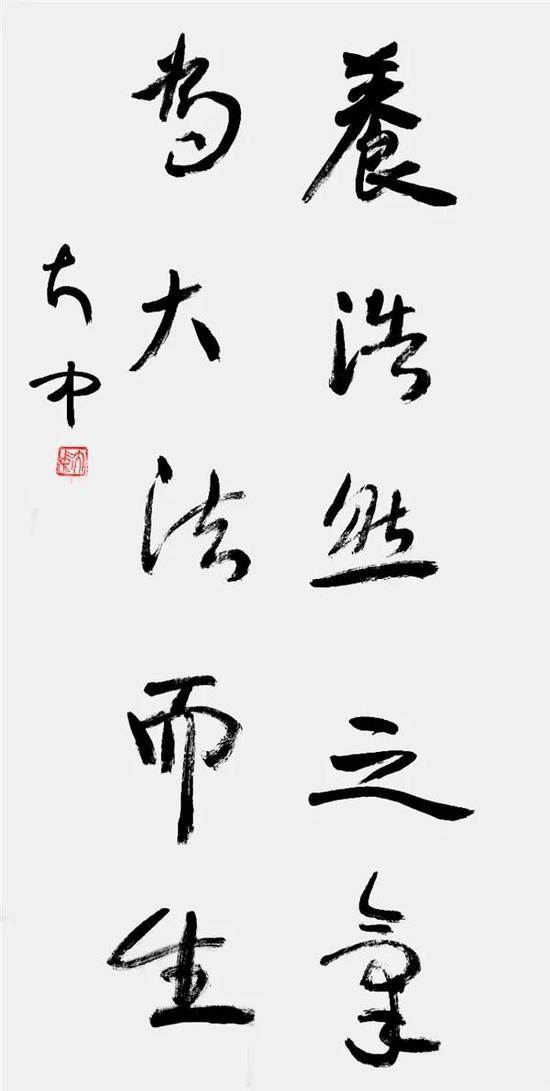 養浩然之氣
尚大法而生
中